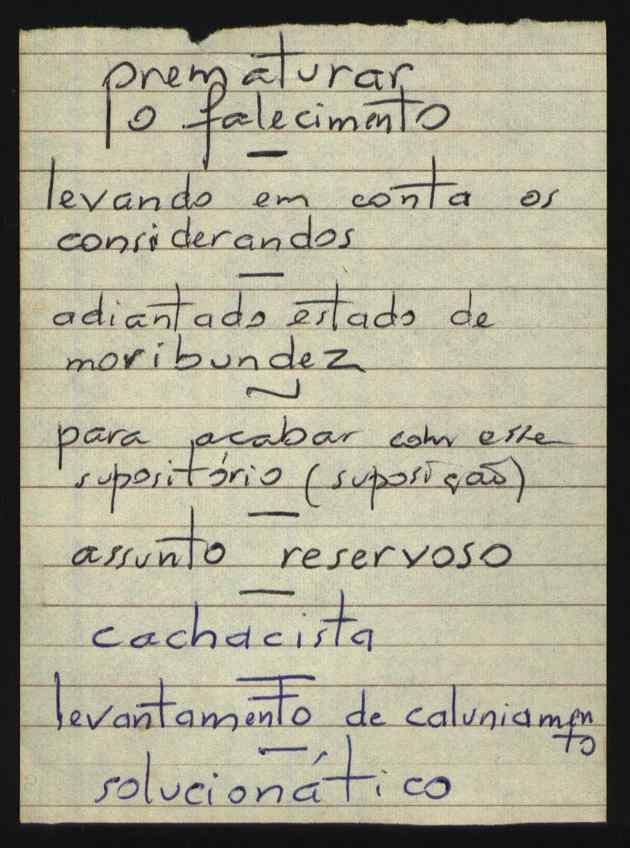 prematurar
o falecimento
levando em conta os
considerandos
adiantado estado de
moribundez
para acabar com esse
supositório (suposição)
assunto reservoso
cachacista
levantamento de caluniamen
to
solucionático